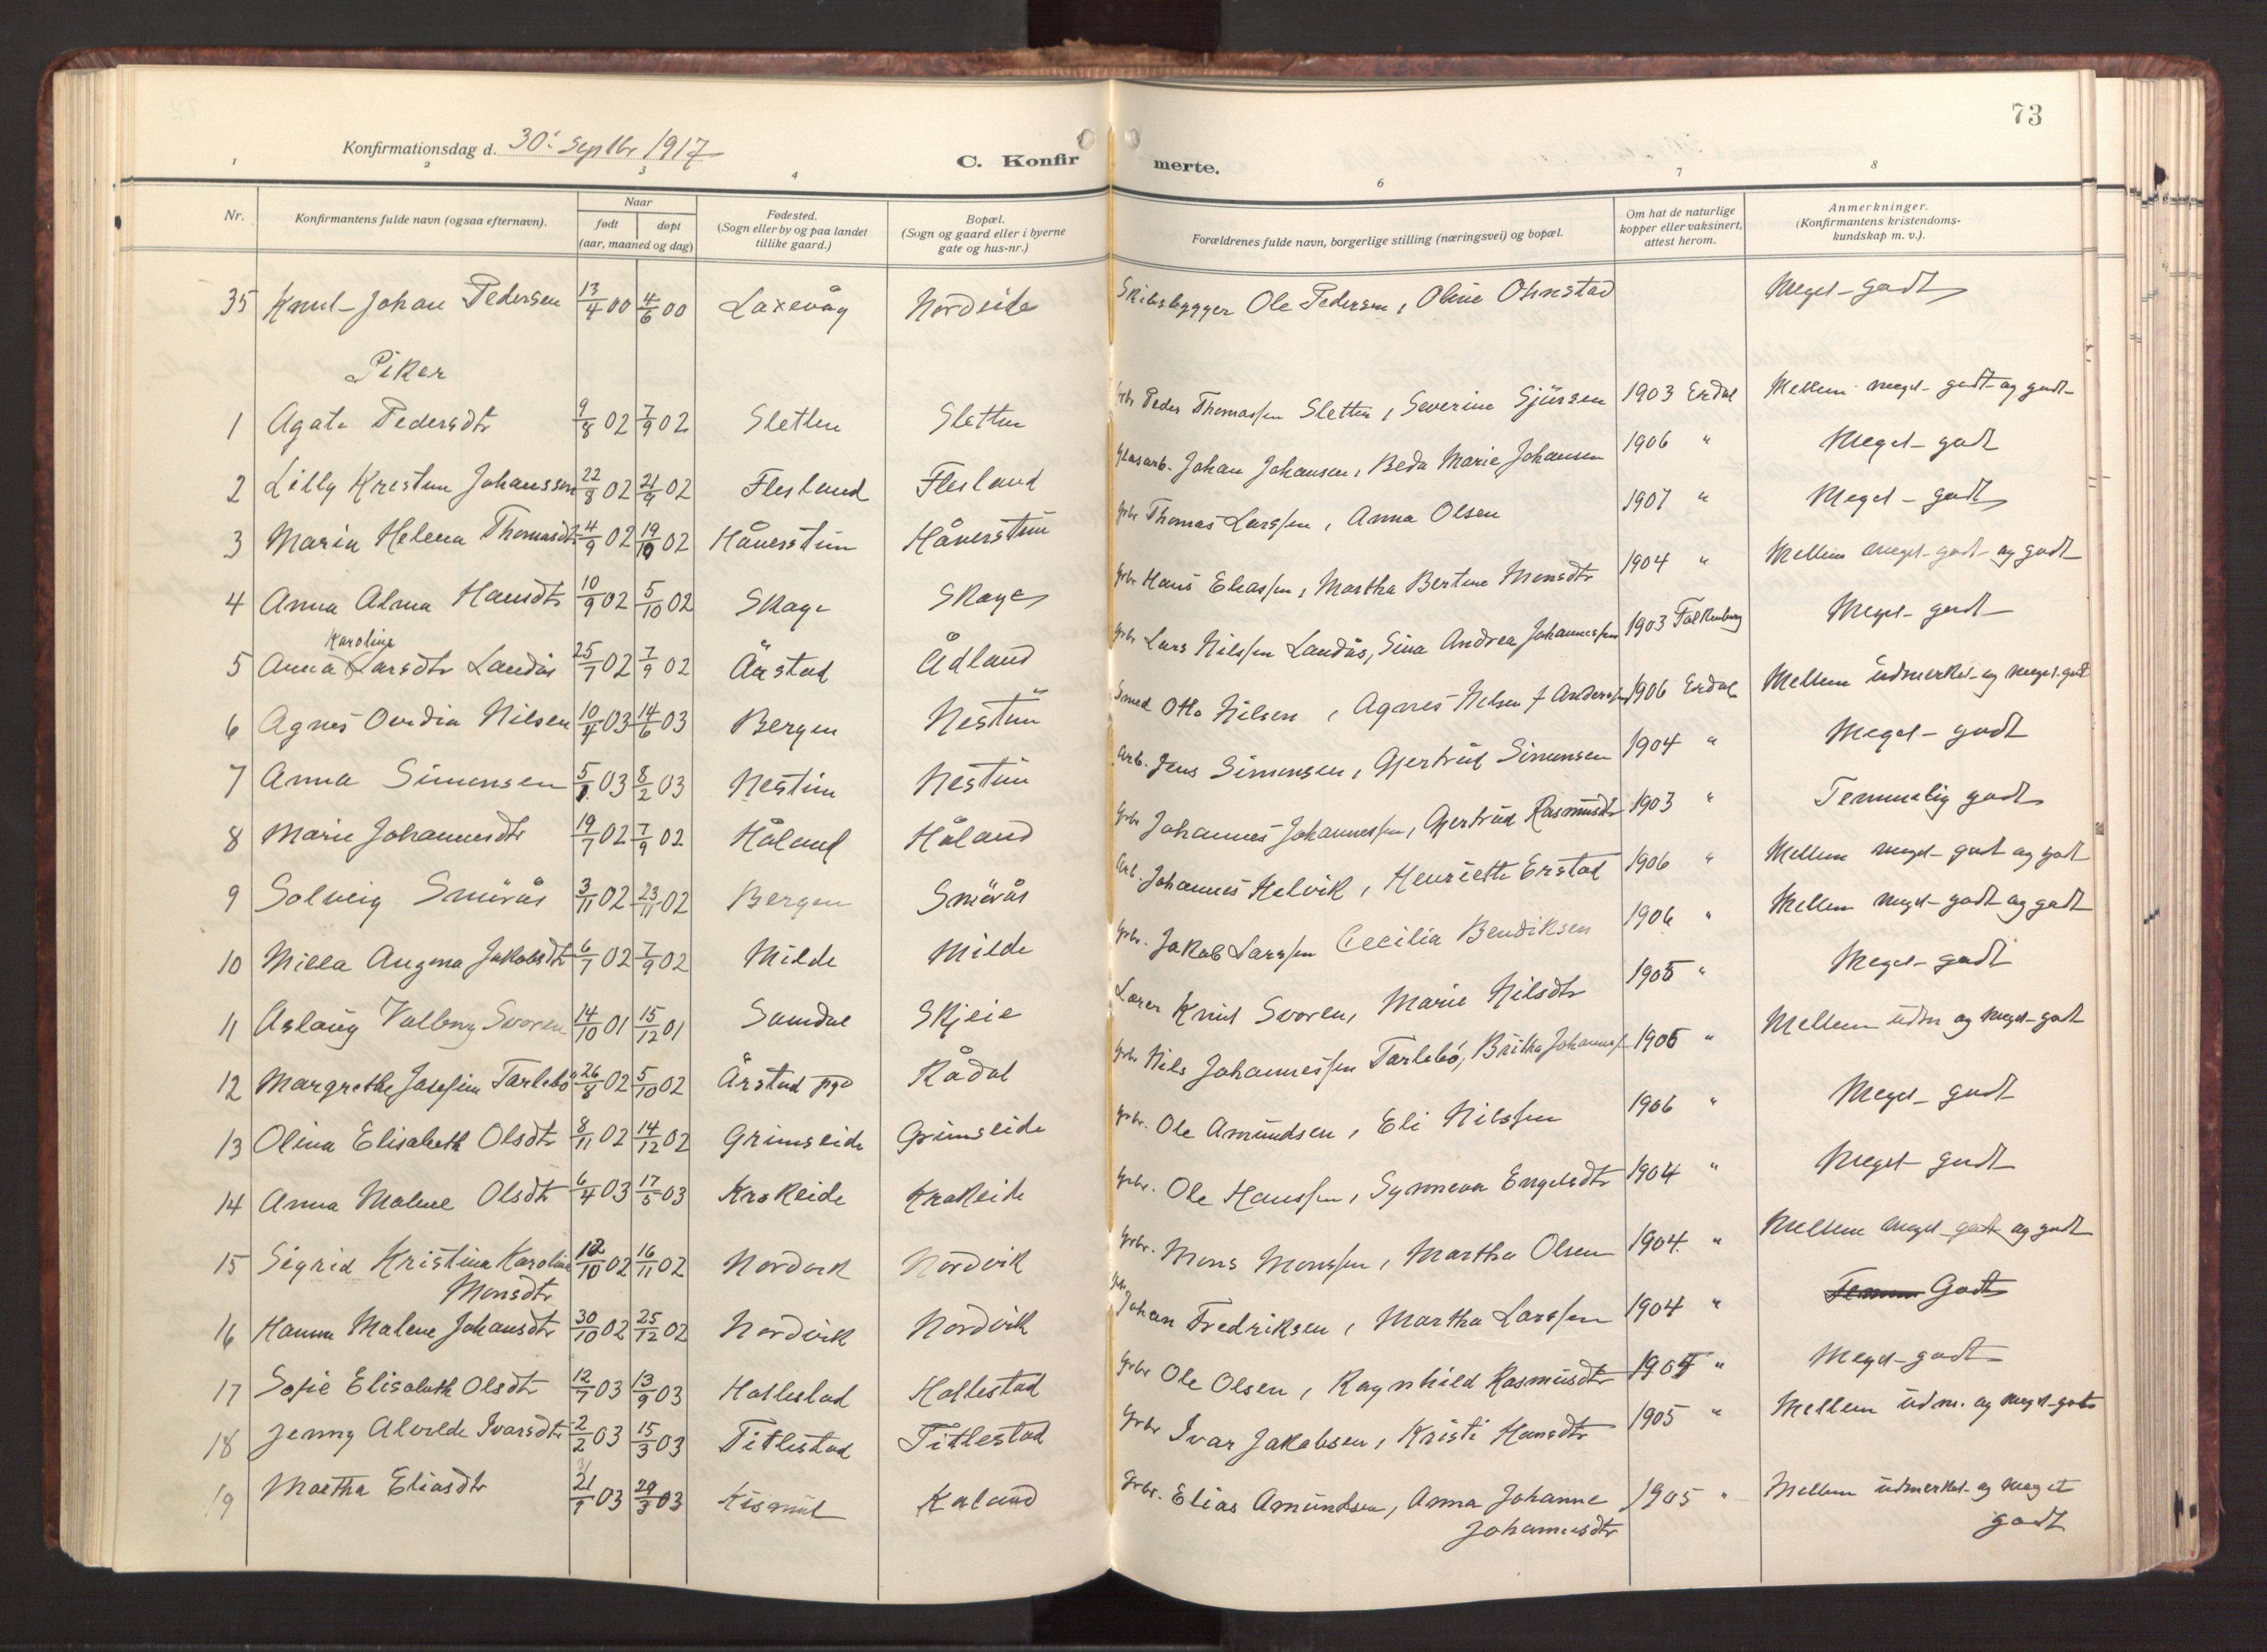 73
Konfirmationsdag d. 30' Septbr 1917
C. Konfirmerte.
1 2 3 4 6 7 8
Nr. Konfirmantens fulde navn (ogsaa efternavn). Naar født døpt (aar, maaned og dag) Fødested. (Sogn eller by og paa landet tillike gaard.) Bopæl. (Sogn og gaard eller i byerne gate og hus-nr.) Forældrenes fulde navn, borgerlige stilling (næringsvei) og bopæl. Om hat de naturlige kopper eller vaksinert, attest herom. Anmerkninger. (Konfirmantens kristendoms-kundskap m. v.).
35 Knut Johan Pedersen 13/4 00 4/6 00 Laxevåg Nordeide Skibsbygger Ole Pedersen, Oline Meget godt
Piker
1 Agate Pedersdtr 9/8 02 7/9 02 Sletten Sletten Grbr Peder Thomassen Sletten, Severine Sjursen 1903 Erdal Mellem meget godt og godt
2 Lilly Kristine Johansson 22/8 02 21/9 02 Flesland Flesland Glasarb. Johan Johansen, Beda Marie Johansen 1906 " Meget godt
3 Maria Helena Thomasdtr 4/9 02 19/10 02 Håverstun Håverstun Grbr Thomas Larssen, Anna Olsen 1907 " Meget godt
4 Anna Alma Hansdtr 10/9 02 5/10 02 Skage Skage Grbr Hans Eliassen, Martha Bertine Monsdtr 1904 " Mellem meget godt og godt
5 Anna Karoline Larsdtr Landås 25/7 02 7/9 02 Årstad Ådland Grbr Lars Nilssen Landås, Sina Andrea Johannessen 1903 Falkenberg Meget godt
6 Agnes Ovidia Nilsen 10/4 03 14/6 03 Bergen Nestun Smed Otto Nilsen, Agnes Nilsen f Anderssen 1906 Erdal Mellem udmerket og meget godt
7 Anna Simonsen 5/1 03 8/2 03 Nestun Nestun Arb. Jens Simonsen, Gjertrud Simonsen 1904 " Meget godt
8 Marie Johannesdtr 19/7 02 7/9 02 Håland Håland Grbr Johannes Johannessen, Gjertrud Rasmusdtr 1903 " Temmelig godt
9 Solveig Smörås 3/11 02 23/11 02 Bergen Smörås Arb. Johannes Helvik, Henriette Erstad 1906 " Mellem meget godt og godt
10 Milla Augona Jakobsdtr 6/7 02 7/9 02 Milde Milde Grbr. Jakob Larssen Cecilia Bendiksen 1906 " Mellem meget godt og godt
11 Aslaug Valborg Svoren 14/10 01 15/12 01 Samdal Skjeie Lærer Knut Svoren, Marie Nilsdtr 1905 " Meget godt
12 Margrethe Josefine Tarlebö 26/8 02 5/10 02 Årstad pgd Rådal Grbr Nils Johannessen Tarlebö, Britha Johannesd 1905 " Mellem udm og meget godt
13 Olina Elisabeth Olsdtr 8/11 02 14/12 02 Grimseide Grimseide Grbr. Ole Amundsen, Eli Nilssen 1906 " Meget godt
14 Anna Malene Olsdtr 6/4 03 17/5 03 Krokeide Krokeide Grbr. Ole Hanssen, Synneva Engelsdtr 1904 " Meget godt
15 Sigrid Kristina Karoline Monsdtr 12/10 02 16/11 02 Nordvik Nordvik Grbr. Mons Monssen, Martha Olsen 1904. " Mellem meget godt og godt
16 Hanna Malene Johansdtr 30/10 02 25/12 02 Nordvik Nordvik Grbr Johan Fredriksen, Martha Larssen 1904 " Godt
17 Sofie Elisabeth Olsdtr 12/7 03 13/9 03 Hatlestad Hatlestad Grbr Ole Olsen, Ragnhild Rasmusdtr 1904 " Meget godt
18 Jenny Alvilde Ivarsdtr 2/2 03 15/3 03 Titlestad Titlestad Grbr Ivar Jakobsen, Kristi Hansdtr 1905 " Mellem udm. og meget godt
19 Martha Eliasdtr 21/1 03 29/3 03 Kismul Kaland Grbr. Elias Amundsen, Anna Johanne Johannesdtr 1905 " Mellem udmerket og meget godt